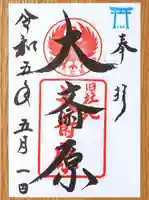 奉拝
大斎原
旧社地
令和五年五月一日